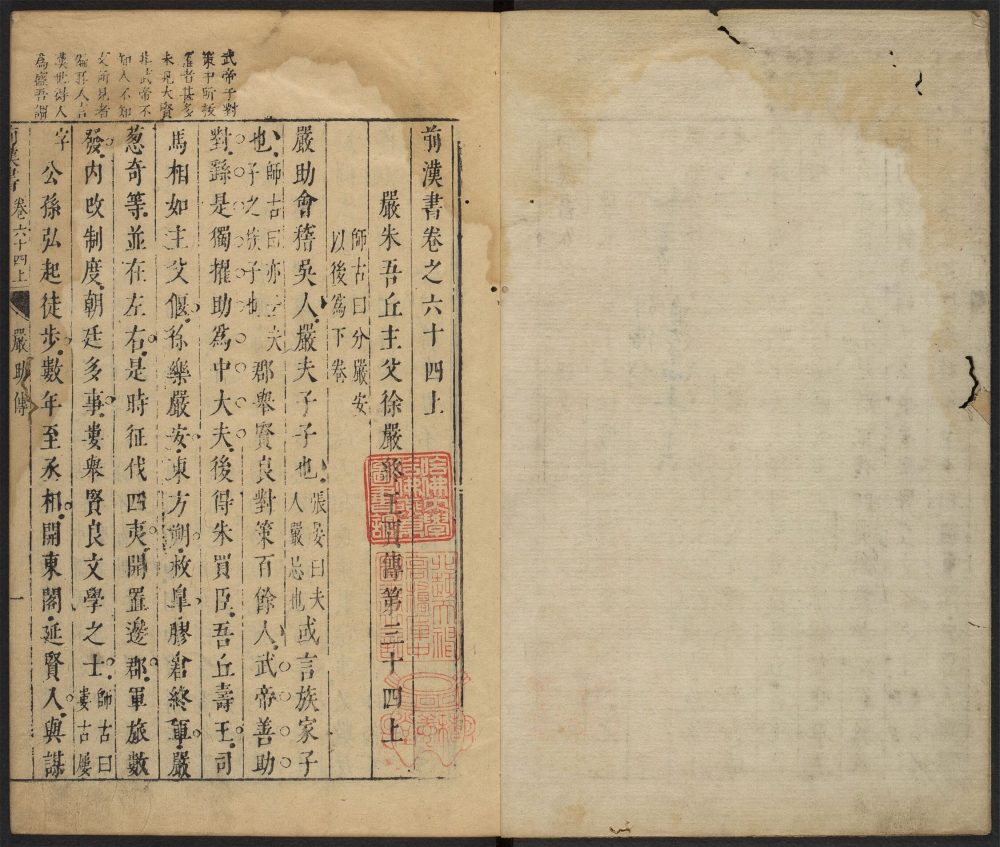 武帝于對
策中所拔
擢者甚多
未見大賢
非武帝不
知人不知
之所見者
人言
漢世得人
為盛吾謂
前漢書卷之六十四上
嚴朱吾丘主父徐嚴終王賈傳第三十四上
師古曰分嚴安
以後爲下卷
嚴助會稽吳人嚴夫子子也張晏曰夫
人嚴忌也或言族家子
也師古曰亦云夫
子之族子也郡舉賢良對策百餘人武帝善助
對繇是獨擢助爲中大夫後得朱買臣吾丘壽王司
馬相如主父偃徐樂嚴安東方朔枚皋膠倉終軍嚴
葱奇等並在左右是時征伐四夷開置邊郡軍旅數
發內改制度朝廷多事婁舉賢良文學之士師古曰
婁古屢
字公孫弘起徒步數年至丞相開東閣延賢人與謀
前漢書 卷六十四上 嚴助傳 一
哈佛大學
圖書